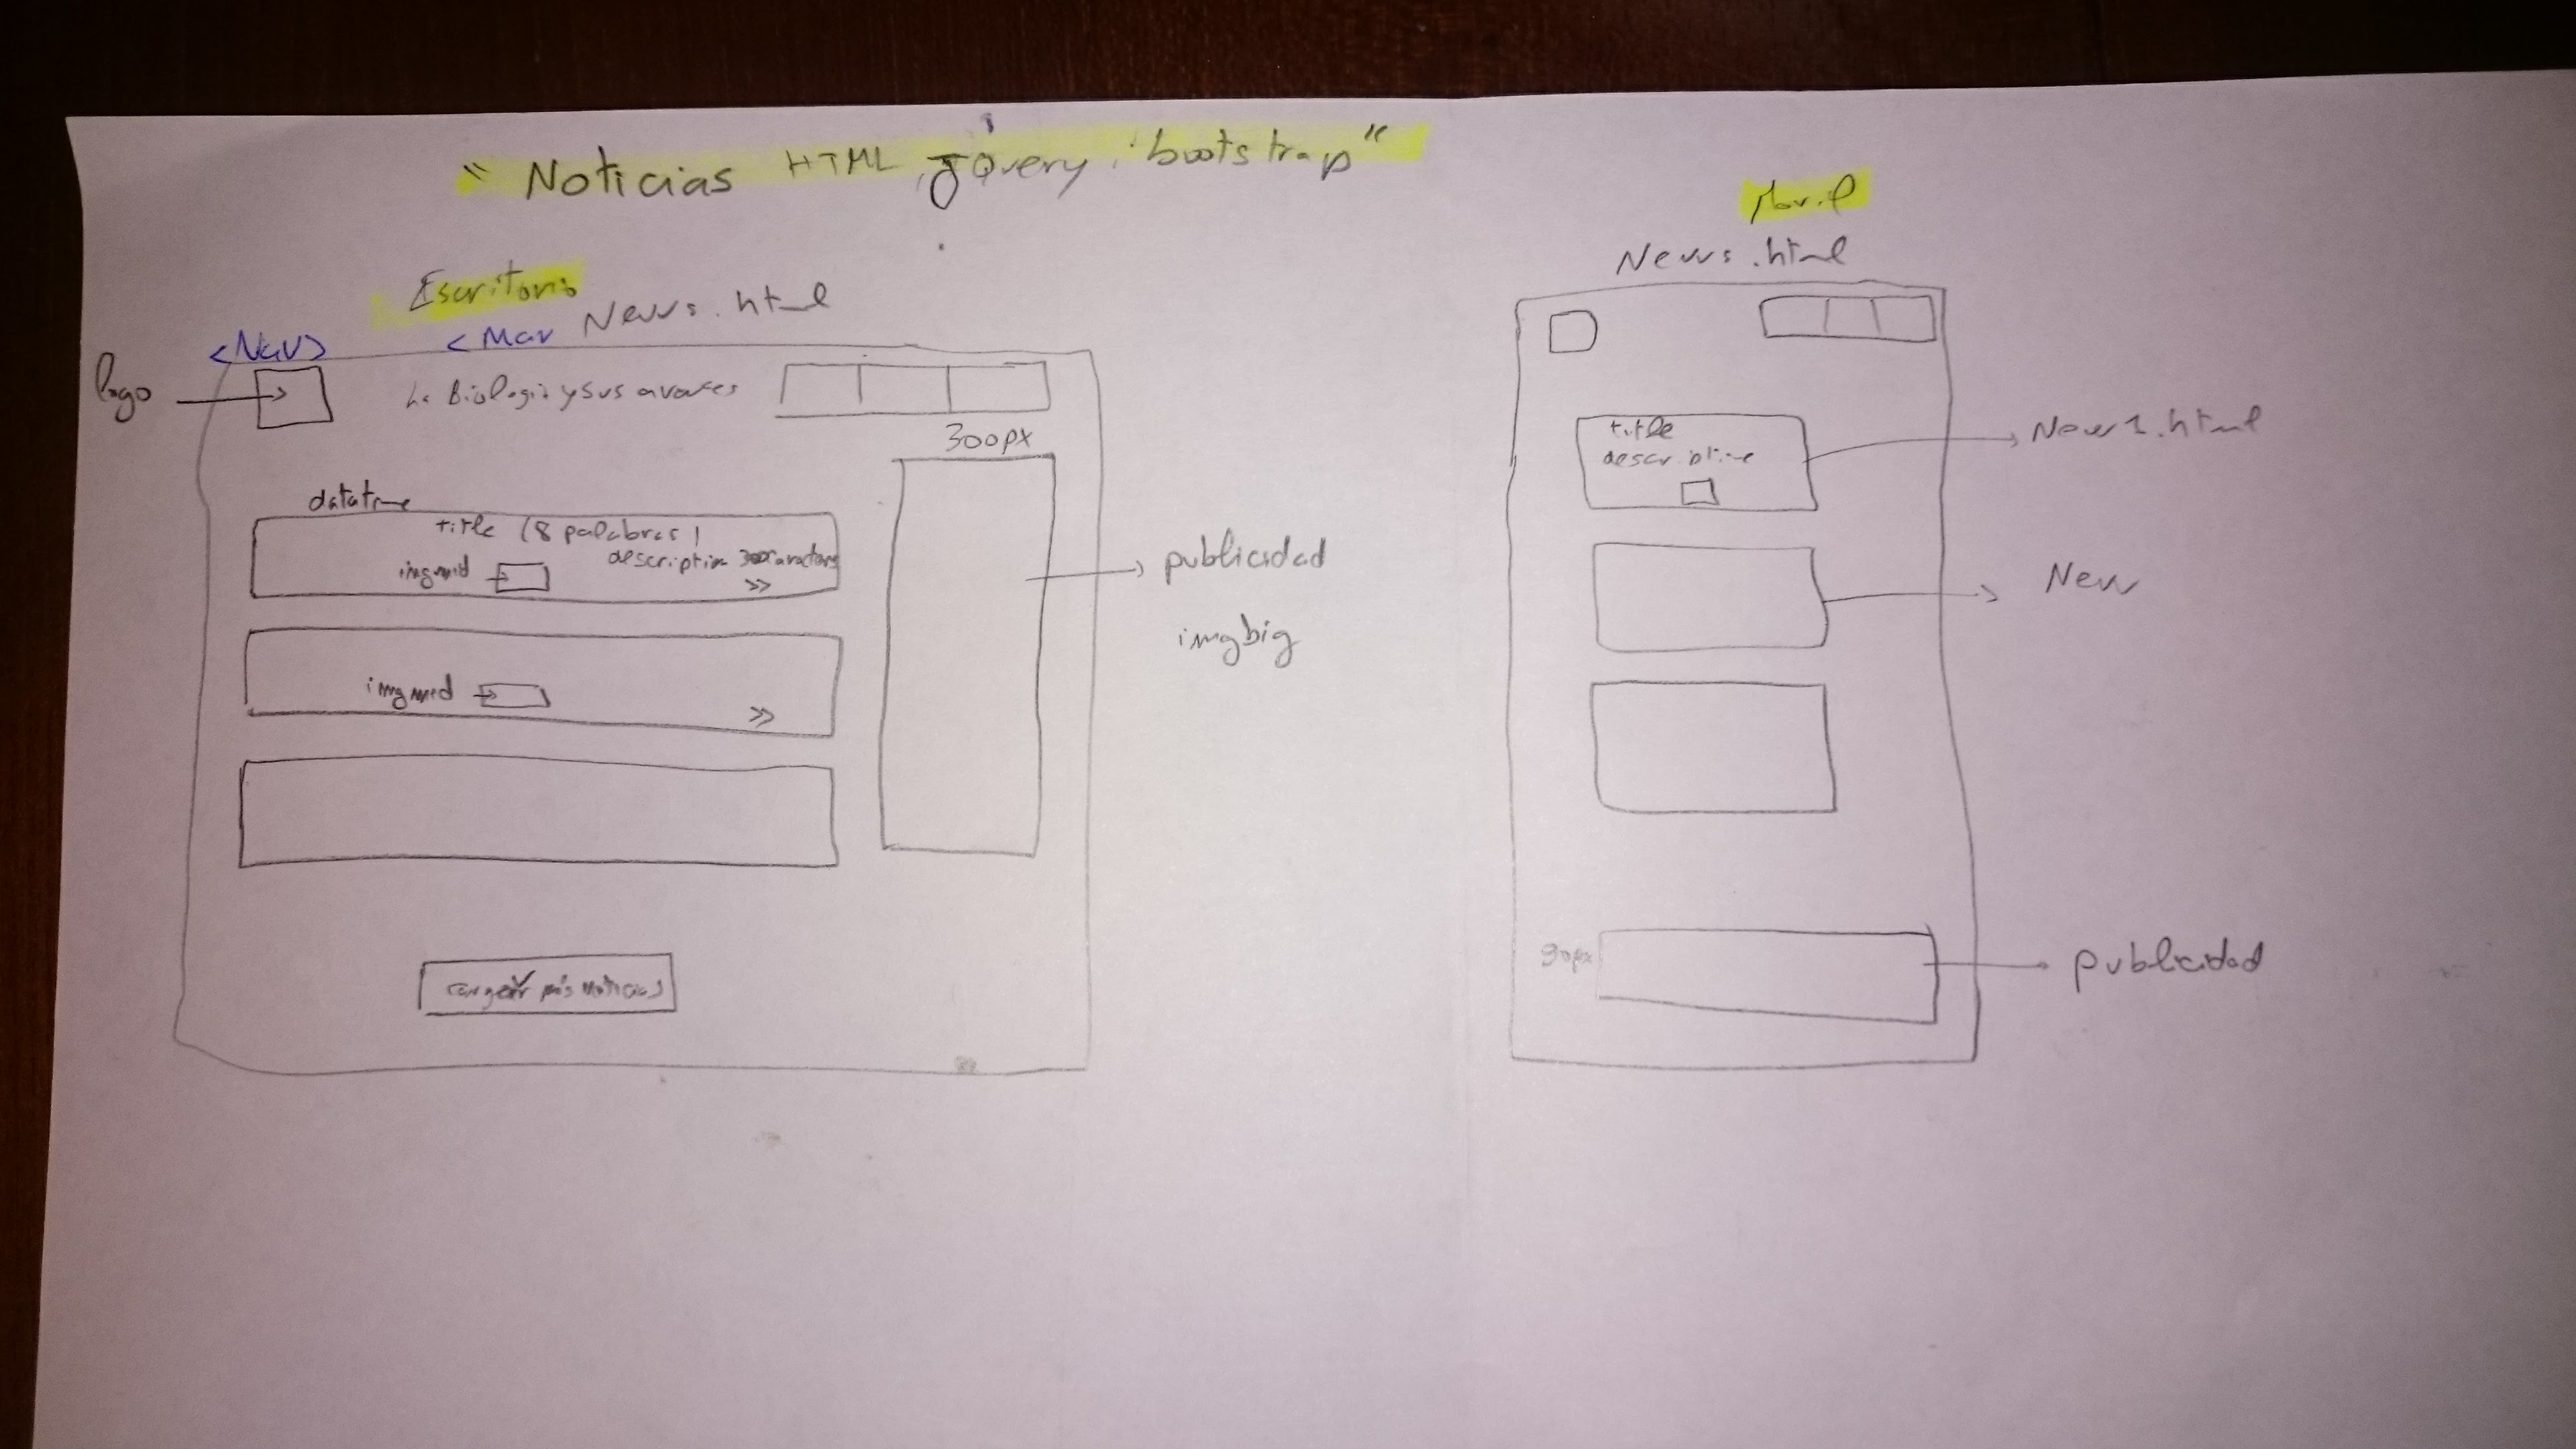 " Noticias HTML, JQuery, bootstrap "
Escritorio
News.html
<Nav>
<Mar
logo
La Biologia y sus avances
300px
datatime
title (8 palabras)
imgmid
description 300caracters
>>
imgmid
>>
publicidad
imgbig
cargar más noticias
Movil
News.html
title
description
New1.html
New
90px
publicidad